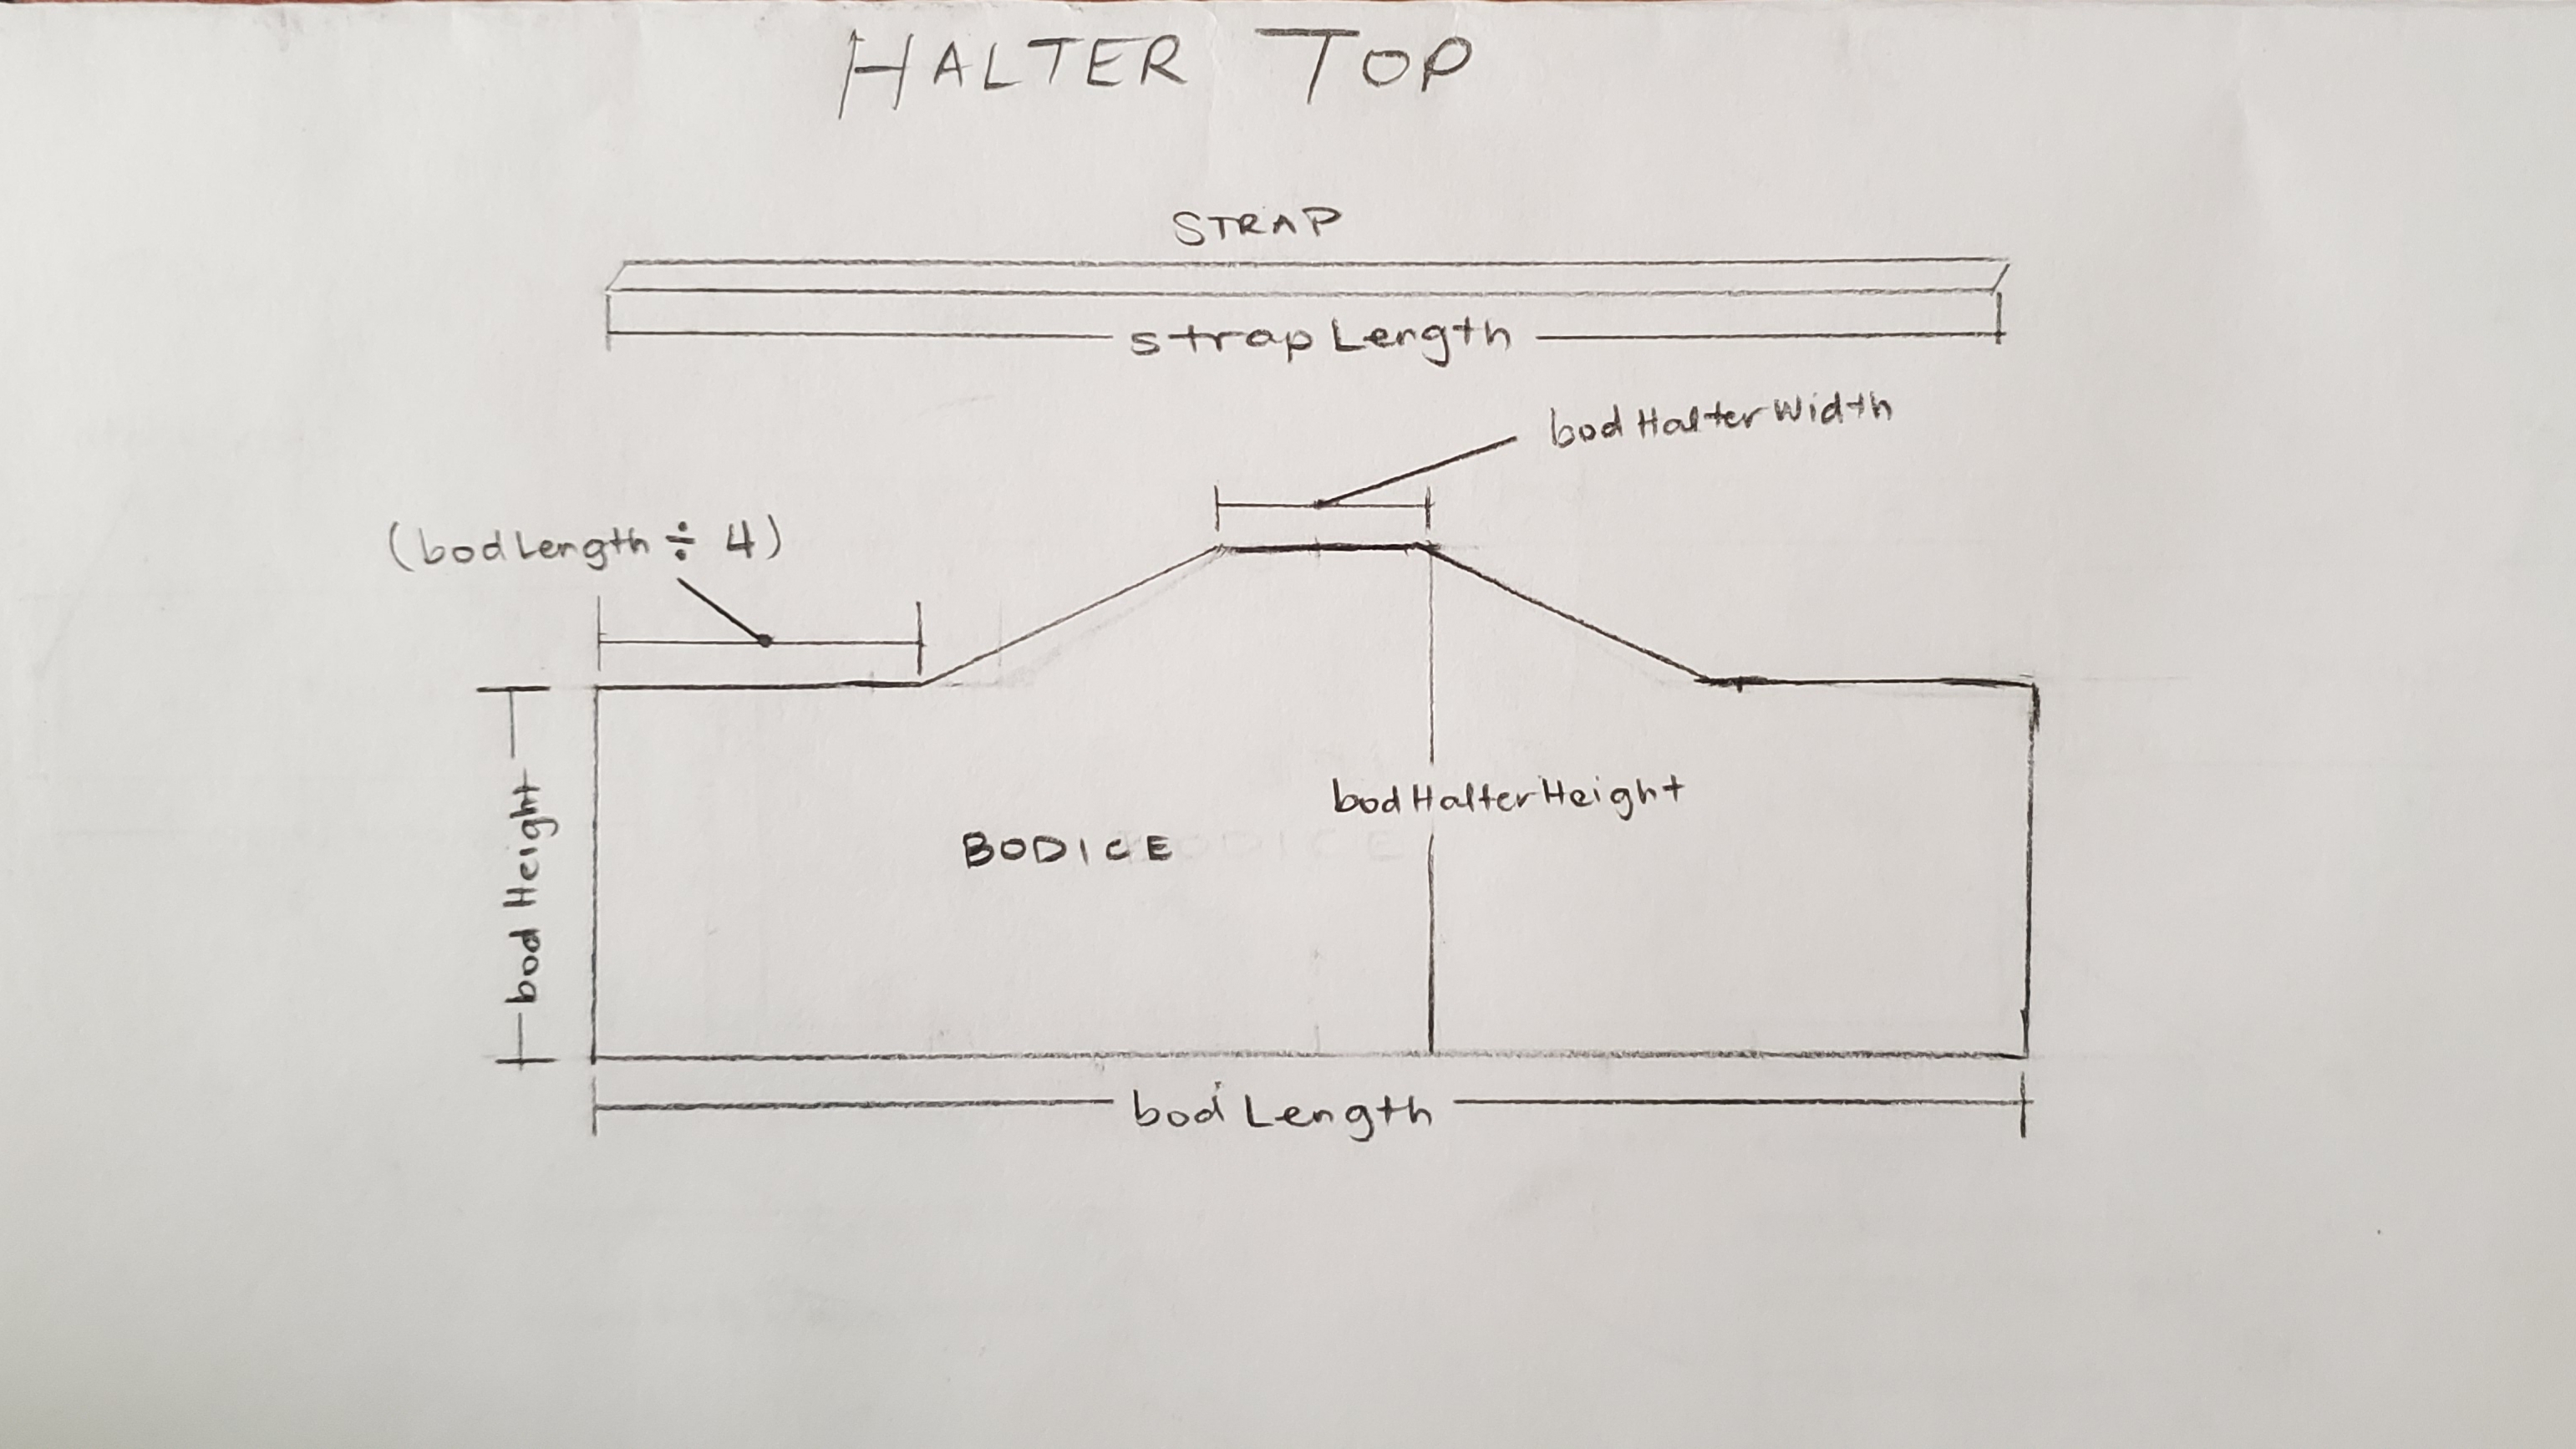 HALTER TOP
STRAP
strap Length
bodHalterWidth
(bodLength ÷ 4)
bodHalterHeight
BODICE
bod Height
bod Length